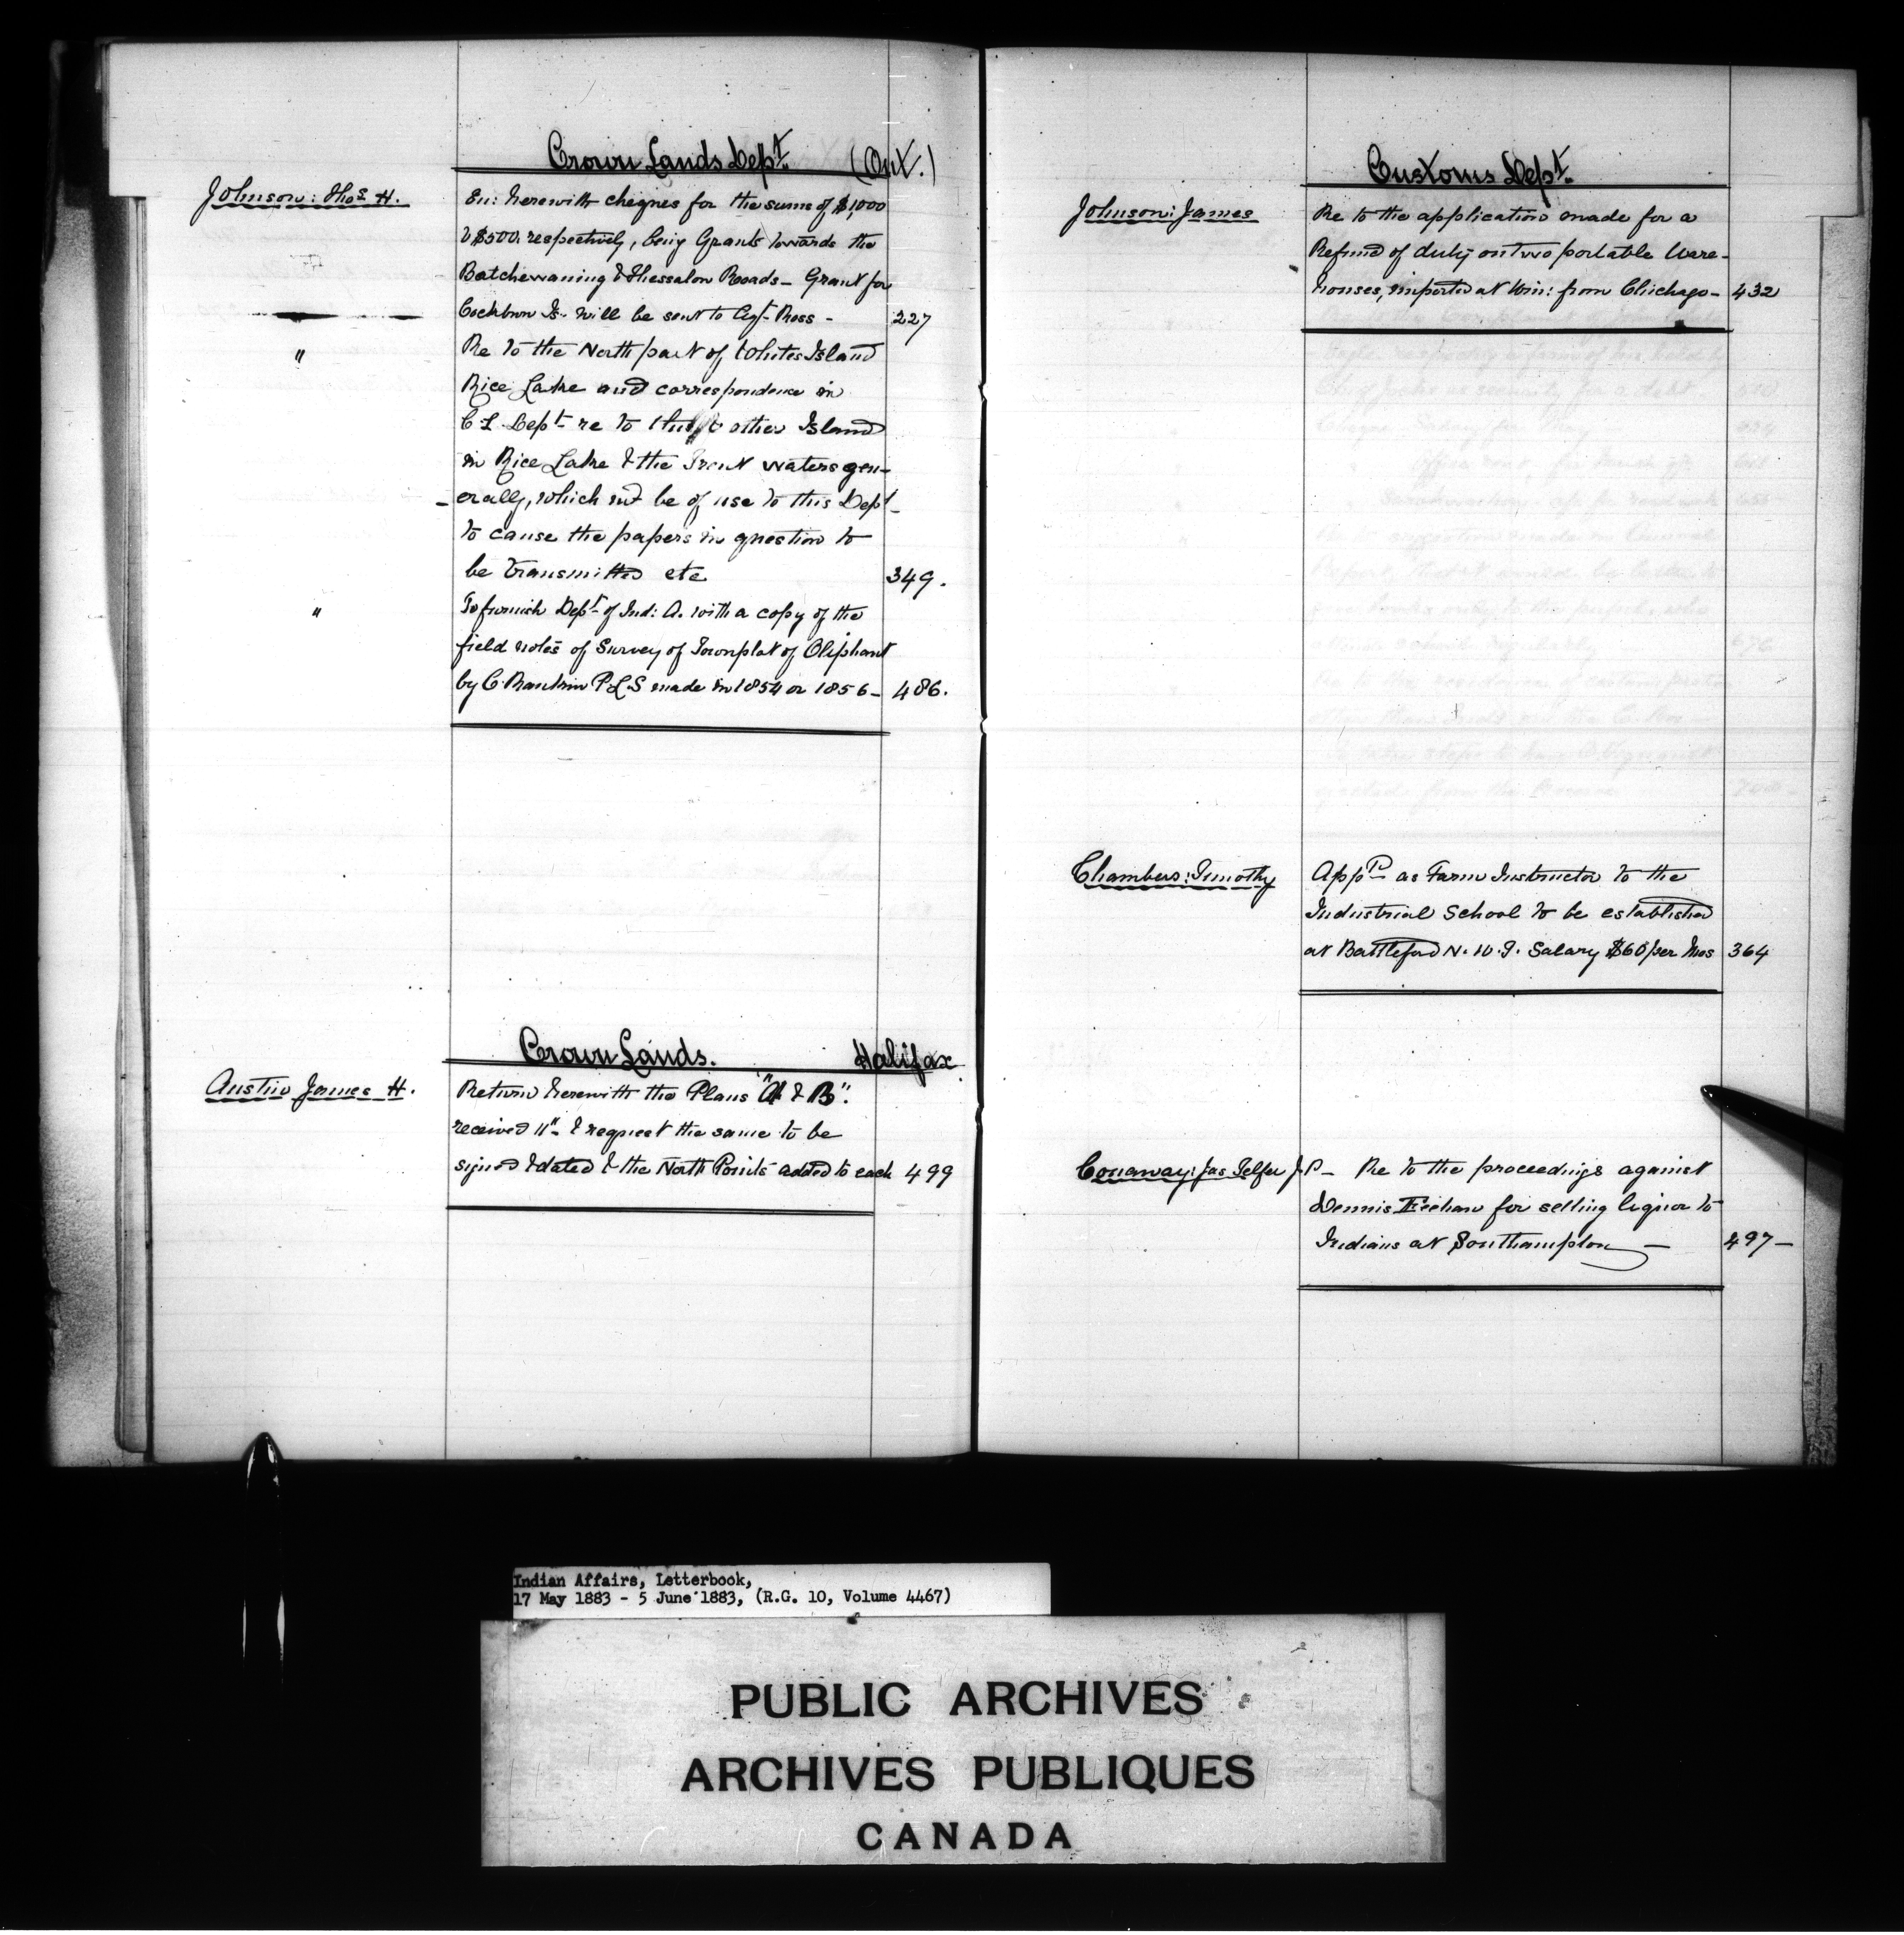 Crown Lands Dept. (Ont.)
Johnson: Thos H.
En: herewith cheques for the sums of $1,000
& $500. respectively, being Grants towards the
Batchewaning & Thessalon Roads - Grant for
Cockburn Is. will be sent to Agt. Ross - 227
" Re to the North part of Whites Island
Rice Lake and correspondence in
C L Dept. re to other Island
in Rice Lake & the Trent waters gen-
erally, which wd be of use to this Dept.
to cause the papers in question to
be transmitted etc 349.
" To furnish Dept. of Ind: A. with a copy of the
field notes of Survey of Townplat of Oliphant
by C. Rankin P.L.S made in 1854 or 1856 - 486.
Crown Lands. Halifax
Austin James H.
Return herewith the Plans "A & B".
received & request the same to be
signed & dated & the North Points added to each 499
Customs Dept.
Johnson: James
Re to the application made for a
Refund of duty on two portable Ware-
houses, imported at Win: from Chichago - 432
Chambers: Timothy
App as Farm Instructor to the
Industrial School to be established
at Battleford N. W. T. Salary $60 per Mos 364
Conaway: Jas Telfer J.P - Re to the proceedings against
Dennis Feehan for selling liquor to
Indians at Southampton - 497 -
Indian Affairs, Letterbook,
17 May 1883 - 5 June 1883, (R.G. 10, Volume 4467)
PUBLIC ARCHIVES
ARCHIVES PUBLIQUES
CANADA